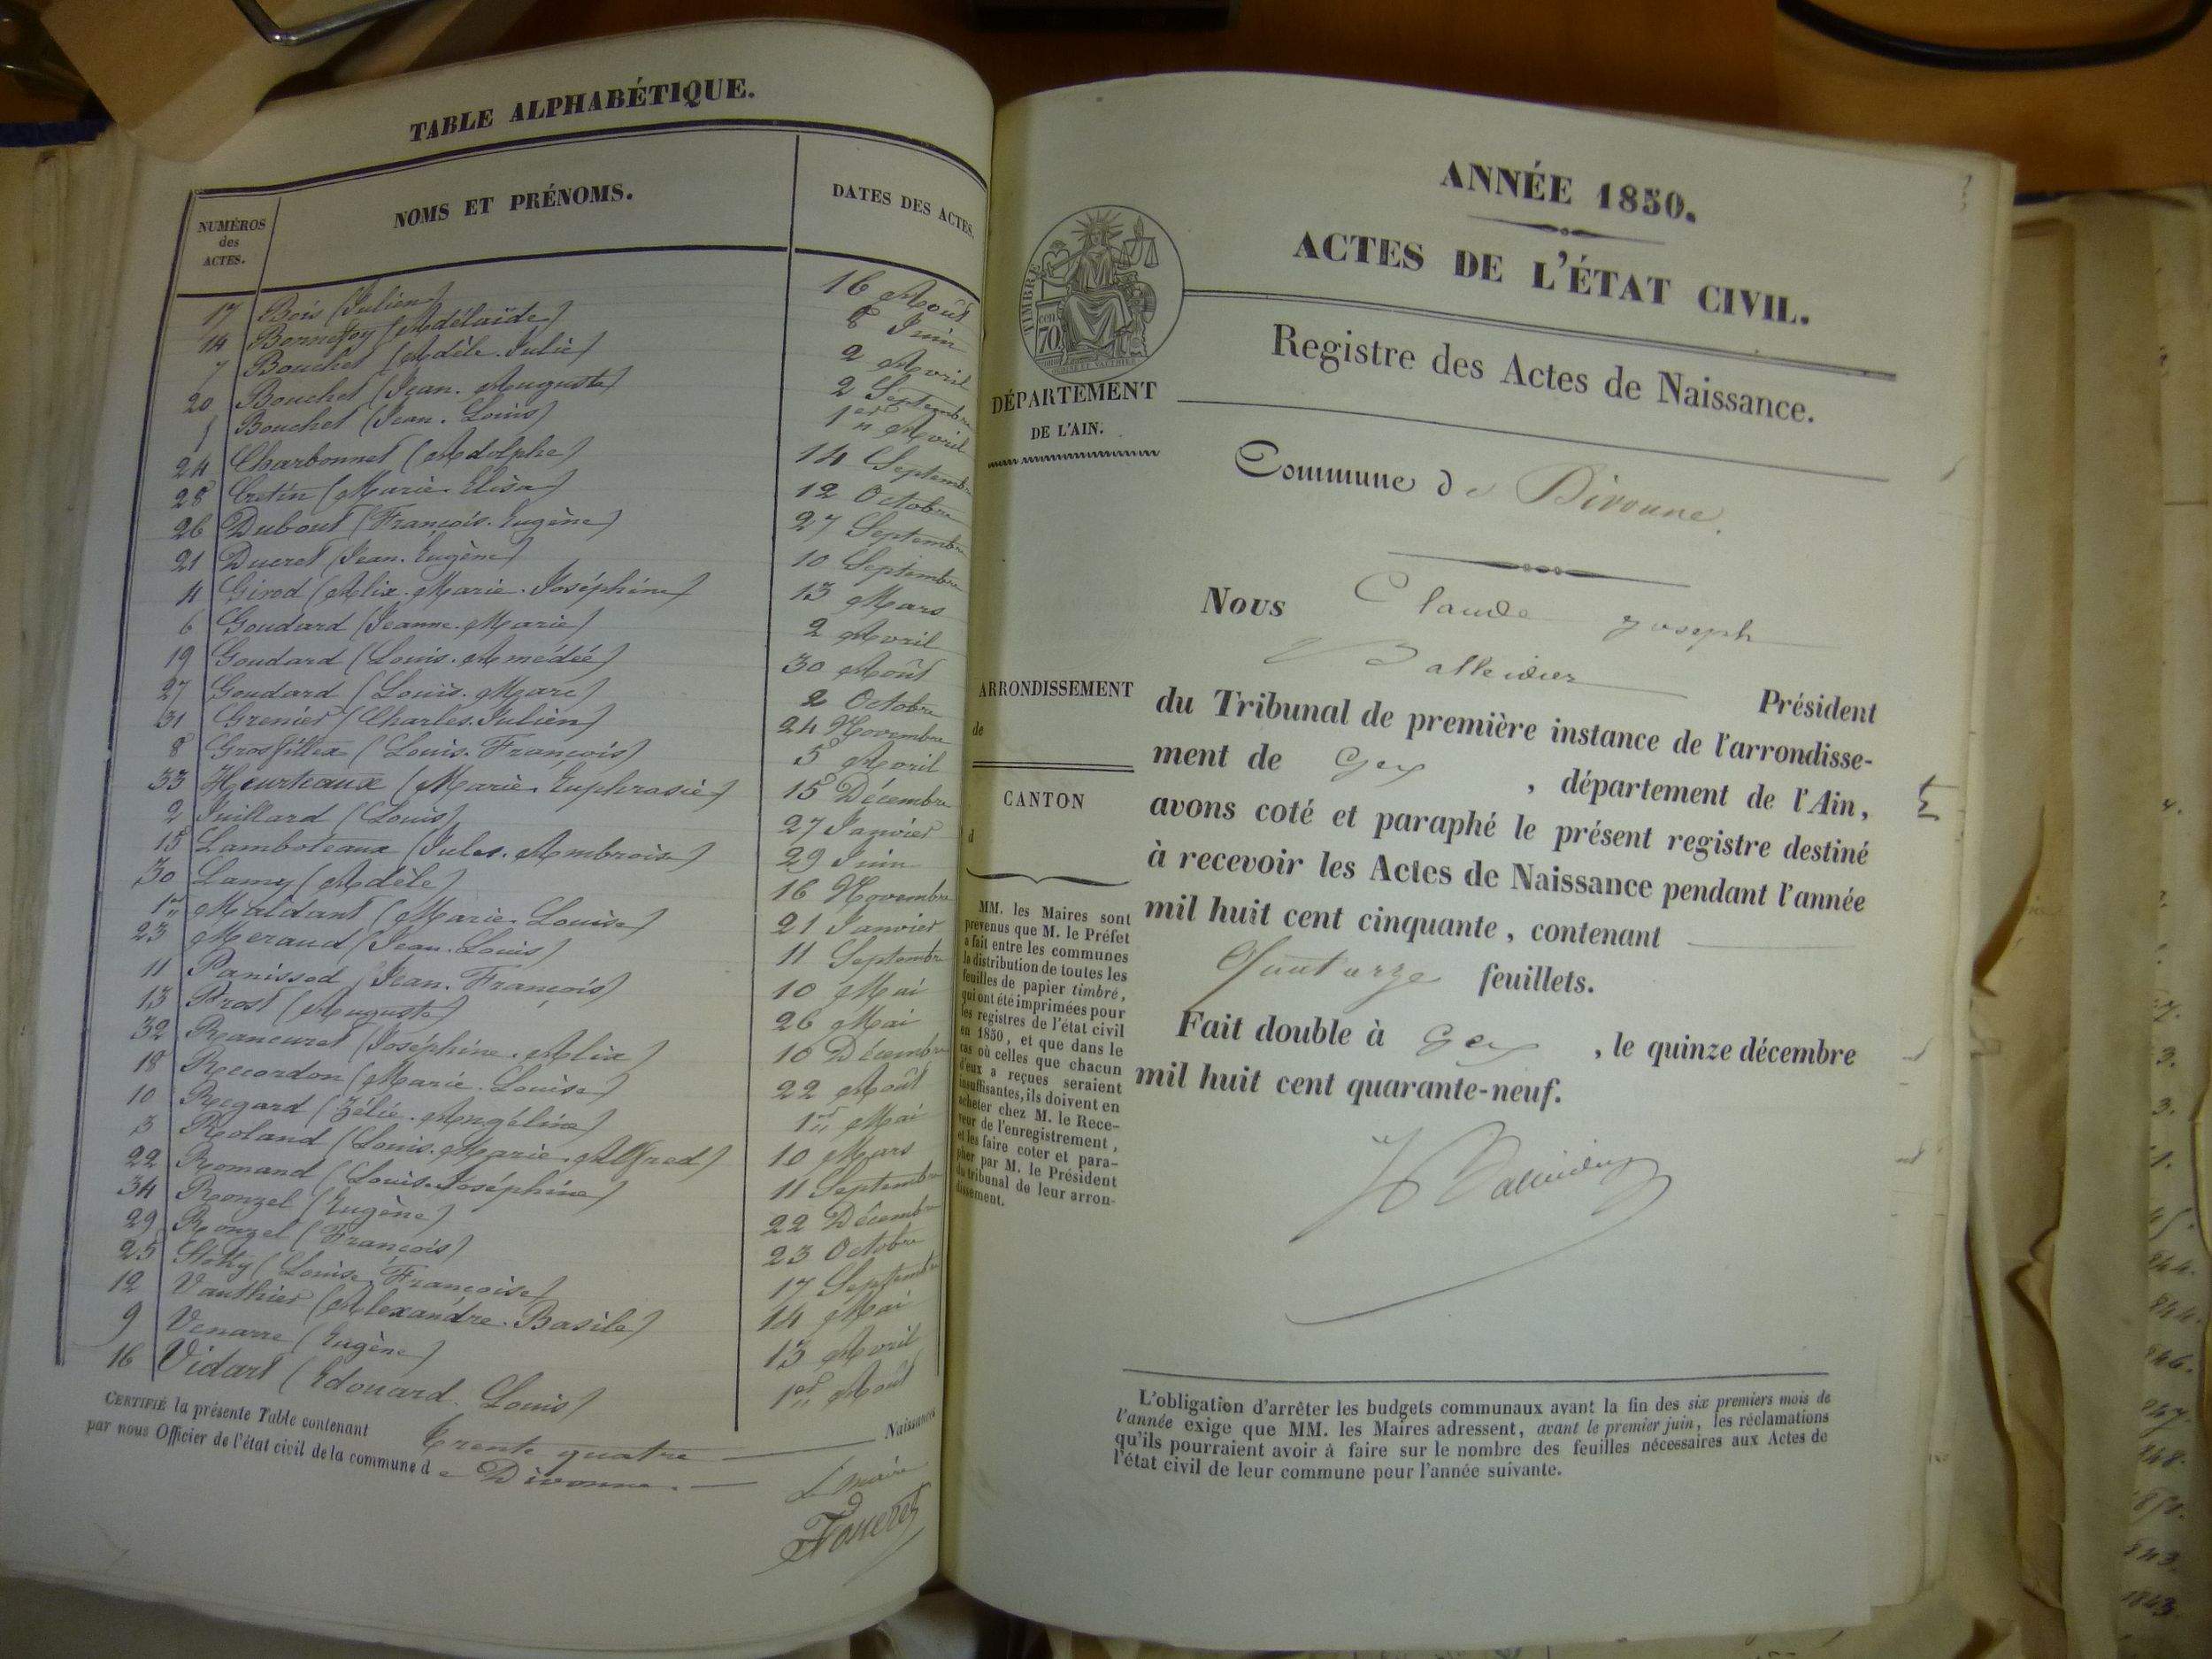 TABLE ALPHABÉTIQUE.
NUMÉROS des ACTES. NOMS ET PRÉNOMS. DATES DES ACTES.
17 Bois (Julien) 16 Août
14 Bonnefoy (Adélaïde) 8 Juin
7 Bouchet (Adèle Julie) 2 Avril
20 Bouchet (Jean. Auguste) 2 Septembre
5 Bouchet (Jean. Louis) 1er Avril
24 Charbonnet (Adolphe) 14 Septembre
28 Cretin (Marie. Elisa) 12 Octobre
26 Dubout (François. Eugène) 27 Septembre
21 Ducret (Jean. Eugène) 10 Septembre
4 Girod (Alix. Marie. Joséphine) 13 Mars
6 Goudard (Jeanne. Marie) 2 Avril
19 Goudard (Louis. Amédée) 30 Août
27 Goudard (Louis. Marc) 2 Octobre
31 Grenier (Charles. Julien) 24 Novembre
8 Grosfillex (Louis. François) 5 Avril
33 Heurteaux (Marie. Euphrasie) 15 Décembre
2 Juillard (Louis) 27 Janvier
15 Lamboteaux (Jules. Ambroise) 29 Juin
30 Lamy (Adèle) 16 Novembre
1er Maldant (Marie. Louise) 21 Janvier
23 Meraud (Jean. Louis) 11 Septembre
11 Panissod (Jean. François) 10 Mai
13 Prost (Auguste) 26 Mai
32 Rancuret (Joséphine. Alix) 10 Décembre
18 Recordon (Marie. Louise) 22 Août
10 Regard (Zélie. Angéline) 1er Mai
3 Roland (Louis. Marie. Alfred) 10 Mars
22 Romand (Louise. Joséphine) 11 Septembre
34 Ronzel (Eugène) 22 Décembre
29 Ronzel (François) 23 Octobre
25 Stoky (Louise. Françoise) 17 Septembre
12 Vauthier (Alexandre. Basile) 14 Mai
9 Venarre (Eugène) 13 Avril
16 Vidart (Edouard. Louis) 1er Août
CERTIFIÉ la présente Table contenant Trente quatre Naissances
par nous Officier de l'état civil de la commune de Divonne.
L. maire
ANNÉE 1850.
ACTES DE L'ÉTAT CIVIL.
TIMBRE
cen 70
Registre des Actes de Naissance.
DÉPARTEMENT
DE L'AIN.
Commune de Divonne.
Nous Claude Joseph
Balleidier Président
ARRONDISSEMENT
de
CANTON
d
du Tribunal de première instance de l'arrondisse-
ment de Gex , département de l'Ain,
avons coté et paraphé le présent registre destiné
à recevoir les Actes de Naissance pendant l'année
mil huit cent cinquante, contenant
Quatorze feuillets.
Fait double à Gex , le quinze décembre
mil huit cent quarante-neuf.
MM. les Maires sont
prévenus que M. le Préfet
a fait entre les communes
la distribution de toutes les
feuilles de papier timbré,
qui ont été imprimées pour
les registres de l'état civil
en 1850, et que dans le
cas où celles que chacun
d'eux a reçues seraient
insuffisantes, ils doivent en
acheter chez M. le Rece-
veur de l'enregistrement,
et les faire coter et para-
pher par M. le Président
du tribunal de leur arron-
dissement.
L'obligation d'arrêter les budgets communaux avant la fin des six premiers mois de
l'année exige que MM. les Maires adressent, avant le premier juin, les réclamations
qu'ils pourraient avoir à faire sur le nombre des feuilles nécessaires aux Actes de
l'état civil de leur commune pour l'année suivante.